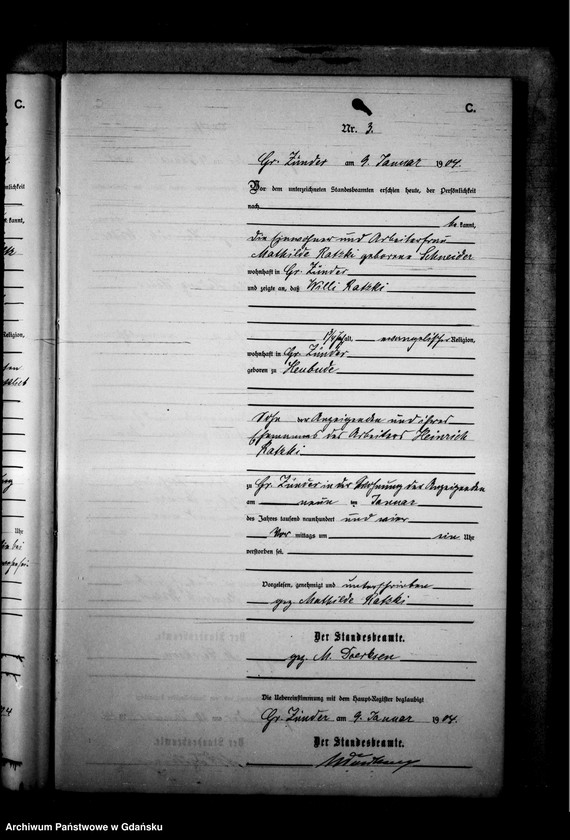 C.
C.
Nr. 3.
Gr. Zünder am 9. Januar 1904.
Vor dem unterzeichneten Standesbeamten erschien heute, der Persönlichkeit
nach
be kannt,
die Einwohner und Arbeiterfrau
Mathilde Ratzki geborene Schneider
wohnhaft in Gr. Zünder
und zeigte an, daß Willi Ratzki
alt, evangelischer Religion,
wohnhaft in Gr. Zünder
geboren zu Heubude
Sohn der Anzeigenden und ihres
Ehemannes des Arbeiters Heinrich
Ratzki
zu Gr. Zünder in der Wohnung der Anzeigenden
am neun ten Januar
des Jahres tausend neunhundert und vier
Vor mittags um ein Uhr
verstorben sei.
Vorgelesen, genehmigt und unterschrieben
gez. Mathilde Ratzki
Der Standesbeamte.
gez. M. Doerksen
Die Uebereinstimmung mit dem Haupt-Register beglaubigt
Gr. Zünder am 9. Januar 1904.
Der Standesbeamte.
Archiwum Państwowe w Gdańsku